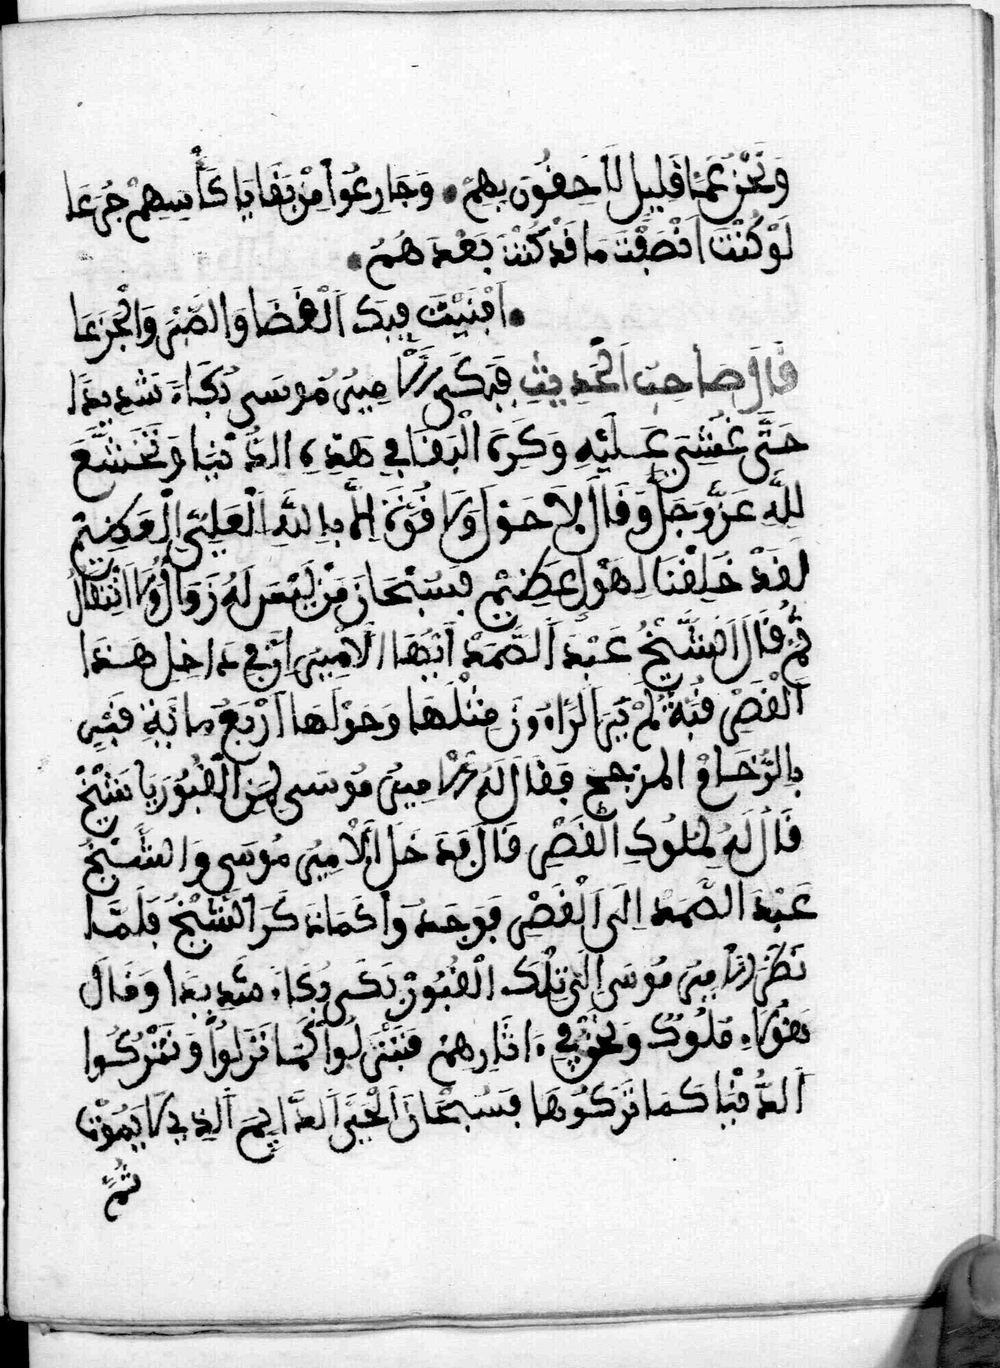 وَنَحْنُ عَمَّا قَلِيلٍ لَاحِقُونَ بِهِمْ • وَجَارِعُوا مِنْ بَقَايَا كَأْسِهِمْ جُرَعَا
لَوْ كُنْتَ أَنْصَفْتَ مَا قَدْ كُنْتَ بَعْدَهُمُ •
• أَفْنَيْتَ فِيكَ الْقَضَا وَالصَّبْرَ وَالْجَزَعَا
قَالَ صَاحِبُ الْحَدِيثِ فَبَكَى الْأَمِيرُ مُوسَى بُكَاءً شَدِيدًا
حَتَّى غُشِيَ عَلَيْهِ وَكَرِهَ الْبَقَا فِي هَذِهِ الدُّنْيَا وَتَخَشَّعَ
لِلَّهِ عَزَّ وَجَلَّ وَقَالَ لَا حَوْلَ وَلَا قُوَّةَ إِلَّا بِاللَّهِ الْعَلِيِّ الْعَظِيمِ
لَقَدْ خُلِقْنَا لِهَوْلٍ عَظِيمٍ فَسُبْحَانَ مَنْ لَيْسَ لَهُ زَوَالٌ وَلَا انْتِقَالٌ
ثُمَّ قَالَ الشَّيْخُ عَبْدُ الصَّمَدِ أَيُّهَا الْأَمِيرُ إِنَّ فِي دَاخِلِ هَذَا
الْقَصْرِ قُبَّةً لَمْ يَرَ الرَّاءُونَ مِثْلَهَا وَحَوْلَهَا أَرْبَعُ مِائَةِ قَبْرٍ
بِالرُّخَامِ المرجح فَقَالَ لَهُ الْأَمِيرُ مُوسَى لِمَنِ الْقُبُورُ يَا شَيْخُ
قَالَ لَهُ لِمُلُوكِ الْقَصْرِ قَالَ فَدَخَلَ الْأَمِيرُ مُوسَى وَالشَّيْخُ
عَبْدُ الصَّمَدِ إِلَى الْقَصْرِ فَوَجَدُوا كَمَا ذَكَرَ الشَّيْخُ فَلَمَّا
نَظَرَ الْأَمِيرُ مُوسَى إِلَى تِلْكَ الْقُبُورِ بَكَى بُكَاءً شَدِيدًا وَقَالَ
هَؤُلَاءِ مُلُوكٌ وَنَحْنُ فِي ءَاثَارِهِمْ فَنَنْزِلُوا كَمَا نَزَلُوا وَنَتْرُكُوا
الدُّنْيَا كَمَا تَرَكُوهَا فَسُبْحَانَ الْحَيِّ الدَّايِمِ الَّذِي لَا يَمُوتُ
ثُمَّ